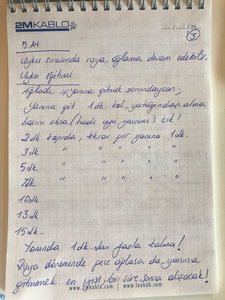 2MKABLO
.../.../20...
3
5. AY
Uyku sırasında rüya, ağlama devam edebilir.
Uyku eğitimi
Ağladı → yanına gitmek zorundaysan,
yanına git 1dk kal, yatağından alma
başını okşa (hadi uyu yavrum) çık!
2dk kapıda, tekrar gir yanına 1dk.
3dk " " " " "
5dk " " " " "
7dk " " " " "
10dk
13dk
15dk.
Yanında 1dk.dan fazla kalma!
Rüya döneminde gece ağlarsa da yanına
gitmemek en iyisi bir süre sonra alışacak!
www.2mkablo.com www.lookek.com